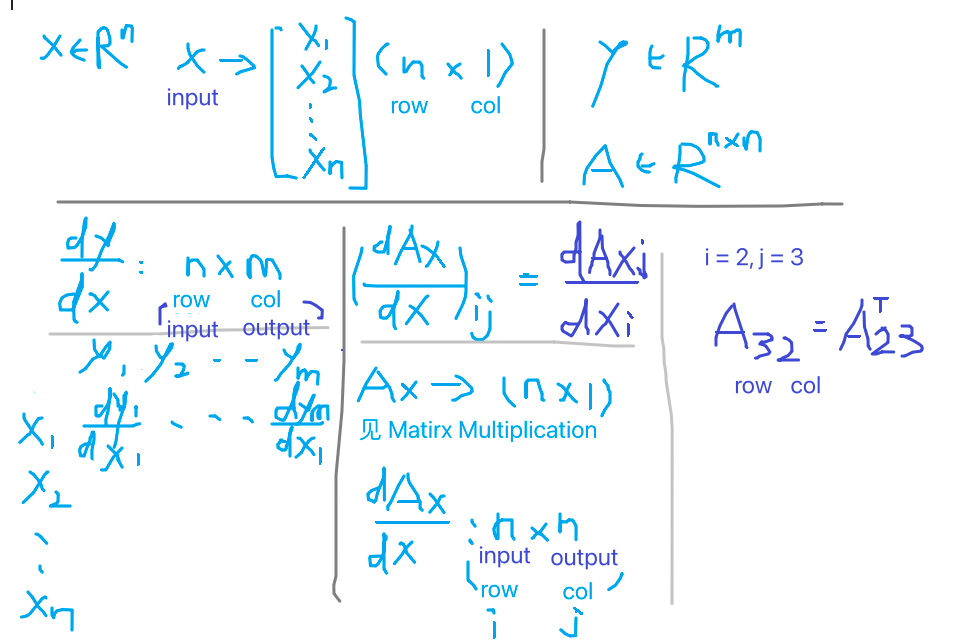 x ∈ Rⁿ
x → [x₁ x₂ ⋮ xₙ] (n × 1)
input
row col
Y ∈ Rᵐ
A ∈ Rⁿˣⁿ
dy/dx : n × m
row col
input output
y₁ y₂ - - yₘ
x₁ dy₁/dx₁ ... dyₘ/dx₁
x₂
⋮
xₙ
(dAx/dx)ᵢⱼ = dAxⱼ/dxᵢ
Ax → (n × 1)
见 Matirx Multiplication
dAx/dx : n × n
input output
(row col)
i j
i = 2, j = 3
A₃₂ = Aᵀ₂₃
row col